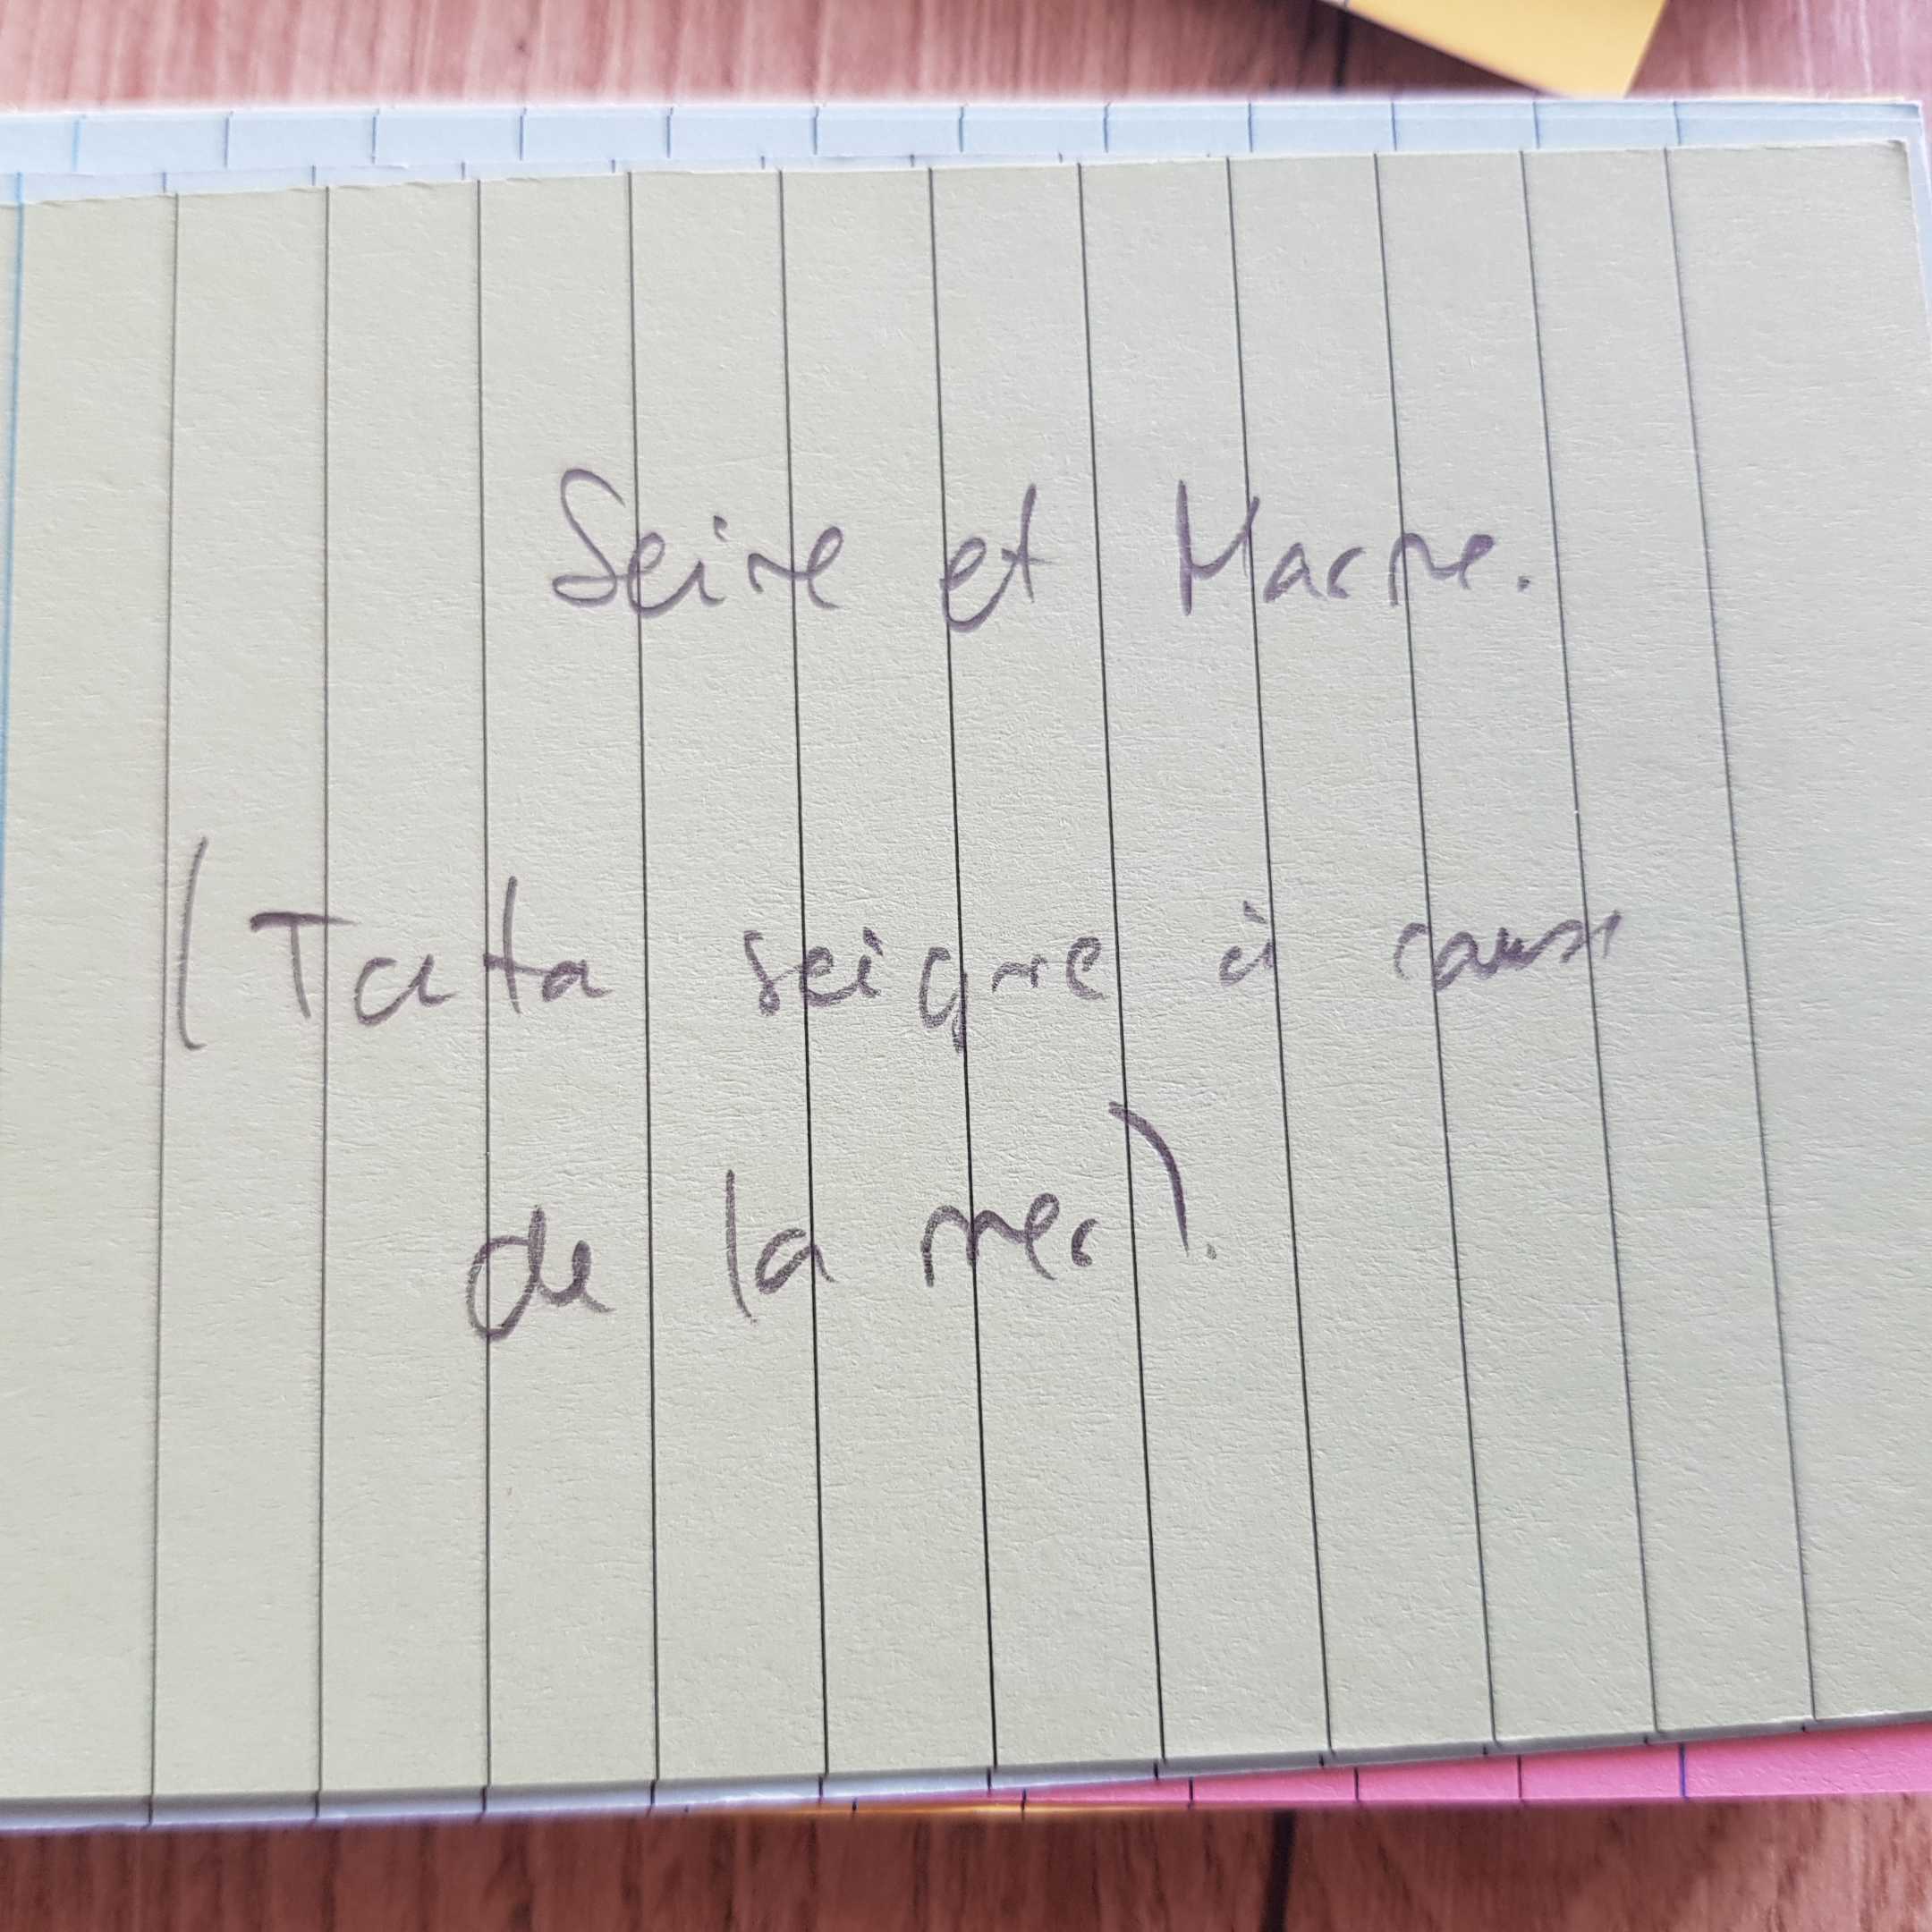 Seine et Marne.
(Tata seigne à cause
de la mer).